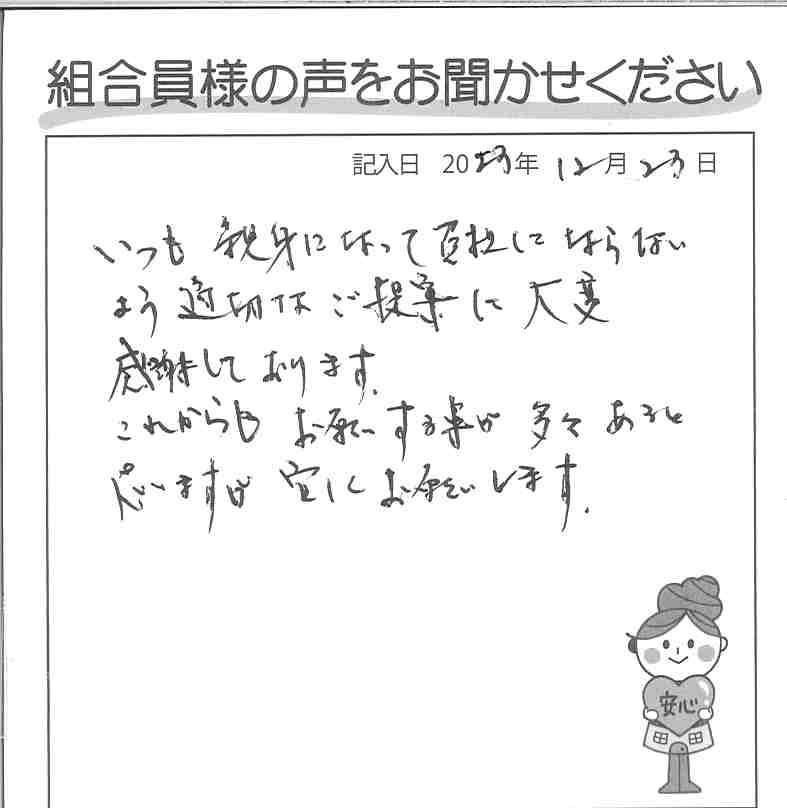 組合員様の声をお聞かせください
記入日 2023年 12月 23日
いつも 親身になって負担にならない
よう 適切なご提案に 大変
感謝しております.
これからも お願いする事が 多々 あると
思いますが 宜しく お願いします.
安心